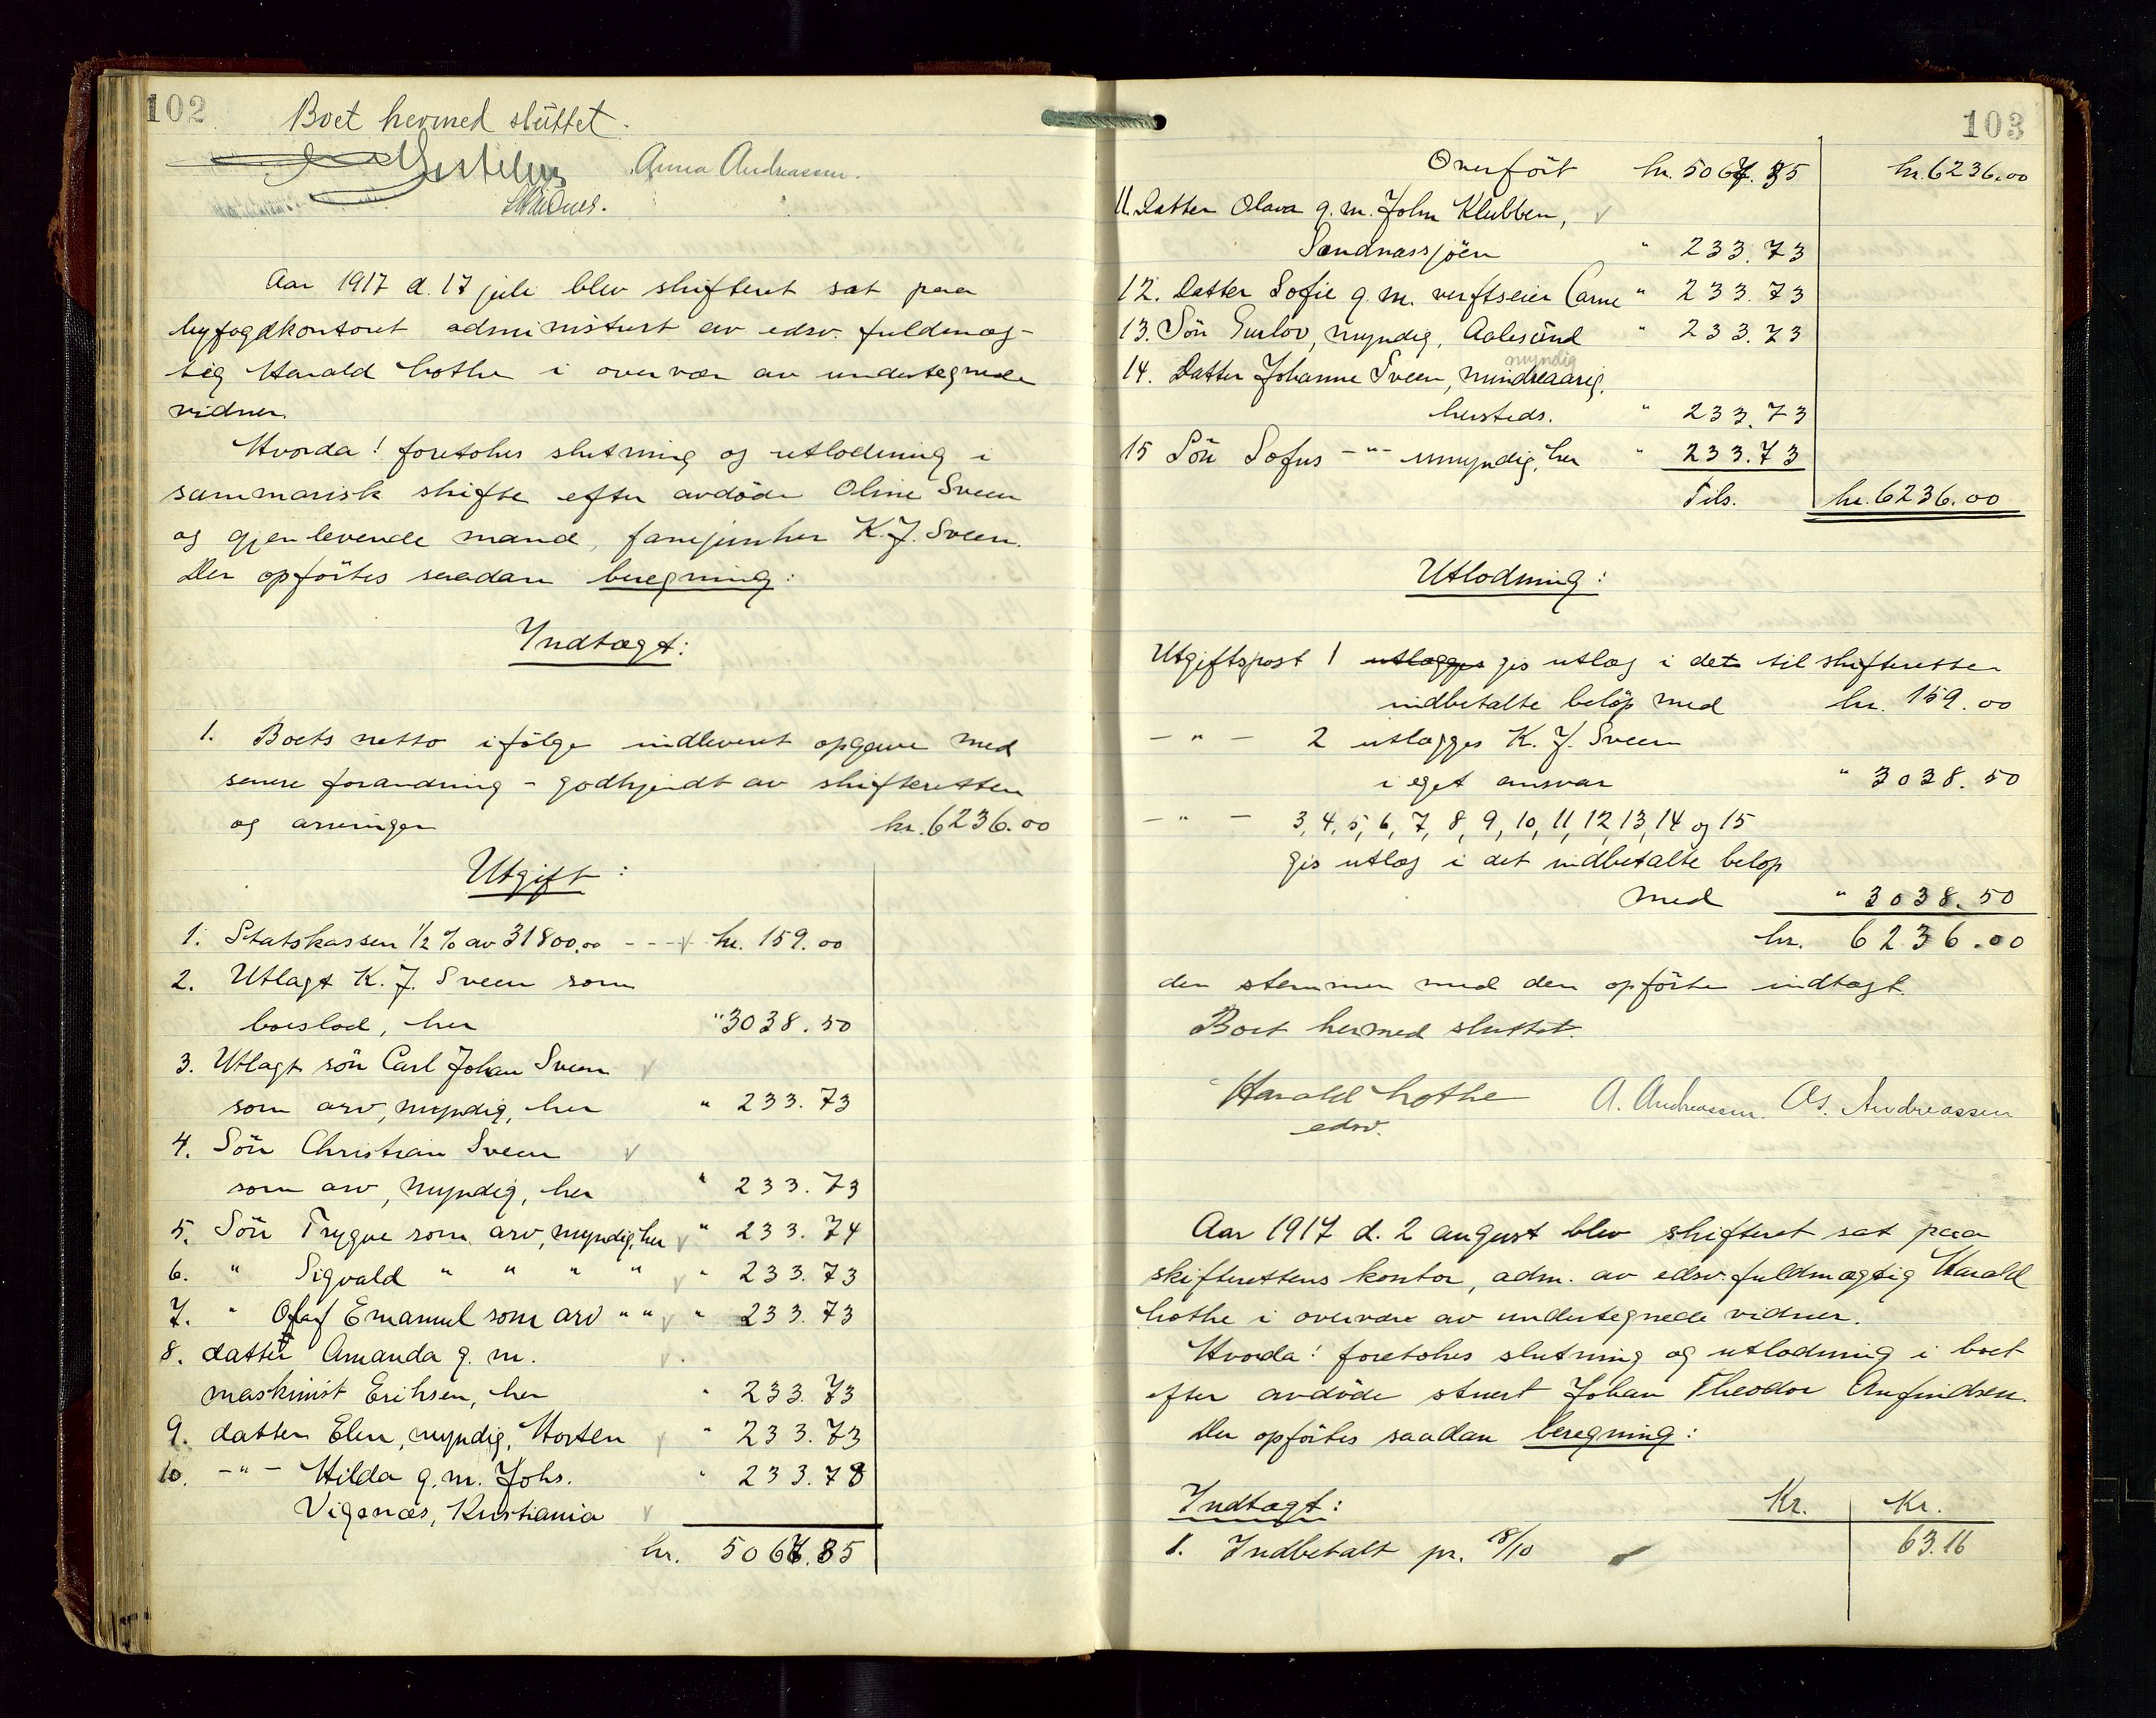 102
Boet hermed sluttet.
Anna Andreassen.
Aar 1917 d. 17 juli blev skifteret sat paa
byfogdkontoret administrert av edsv. fuldmæg-
tig Harald Lothe i overvær av undertegnede
vidner.
Hvorda! foretokes slutning og utlodning i
summarisk skifte efter avdöde Oline Sveen
og gjenlevende mand, fanejunker K. J. Sveen.
Der opförtes saadan beregning:
Indtægt:
1. Boets netto ifölge indleveret opgave med
senere forandring - godkjendt av skifteretten
og arvinger kr. 6236.00
Utgift:
1. Statskassen 1/2 % av 31800.00 - - - kr. 159.00
2. Utlagt K. J. Sveen som
boeslod, her " 3038.50
3. Utlagt sön Carl Johan Sveen
som arv, myndig, her " 233.73
4. Sön Christian Sveen
som arv, myndig, her " 233.73
5. Sön Trygve som arv, myndig, her " 233.74
6. " Sigvald " " " " " 233.73
7. " Olaf Emanuel som arv " " " 233.73
8. datter Amanda g. m.
maskinist Eriksen, her " 233.73
9. datter Elen, myndig, Horten " 233.73
10. -"- Hilda g. m. Johs.
Vigenæs, Kristiania " 233.78
kr. 5067.85
103
Overfört kr. 5067.85 kr. 6236.00
11. Datter Olava g. m. John Klubben,
Sandnæssjöen " 233.73
12. Datter Sofie g. m. verftseier Carne " 233.73
13. Sön Gurlov, myndig, Aalesund " 233.73
myndig
14. Datter Johanne Sveen, mindreaarig,
hersteds. " 233.73
15 Sön Sofus -"- umyndig, her " 233.73
Tils. kr. 6236.00
Utlodning:
Utgiftspost 1 utlægges gis utlæg i det til skifteretten
indbetalte belöp med kr. 159.00
- " - 2 utlægges K. J. Sveen
i eget ansvar " 3038.50
- " - 3, 4, 5, 6, 7, 8, 9, 10, 11, 12, 13, 14 og 15
gis utlæg i det indbetalte belöp
med " 3038.50
kr. 6236.00
der stemmer med den opförte indtægt.
Boet hermed sluttet.
Harald Lothe A. Andreassen. As. Andreassen
edsv.
Aar 1917 d. 2 august blev skifteret sat paa
skifterettens kontor, adm. av edsv. fuldmægtig Harald
Lothe i overvær av undertegnede vidner.
Hvorda! foretokes slutning og utlodning i boet
efter avdöde stuert Johan Theodor Anfindsen.
Der opförtes saadan beregning:
Indtægt: Kr. Kr.
1. Indbetalt pr. 18/10 63.16